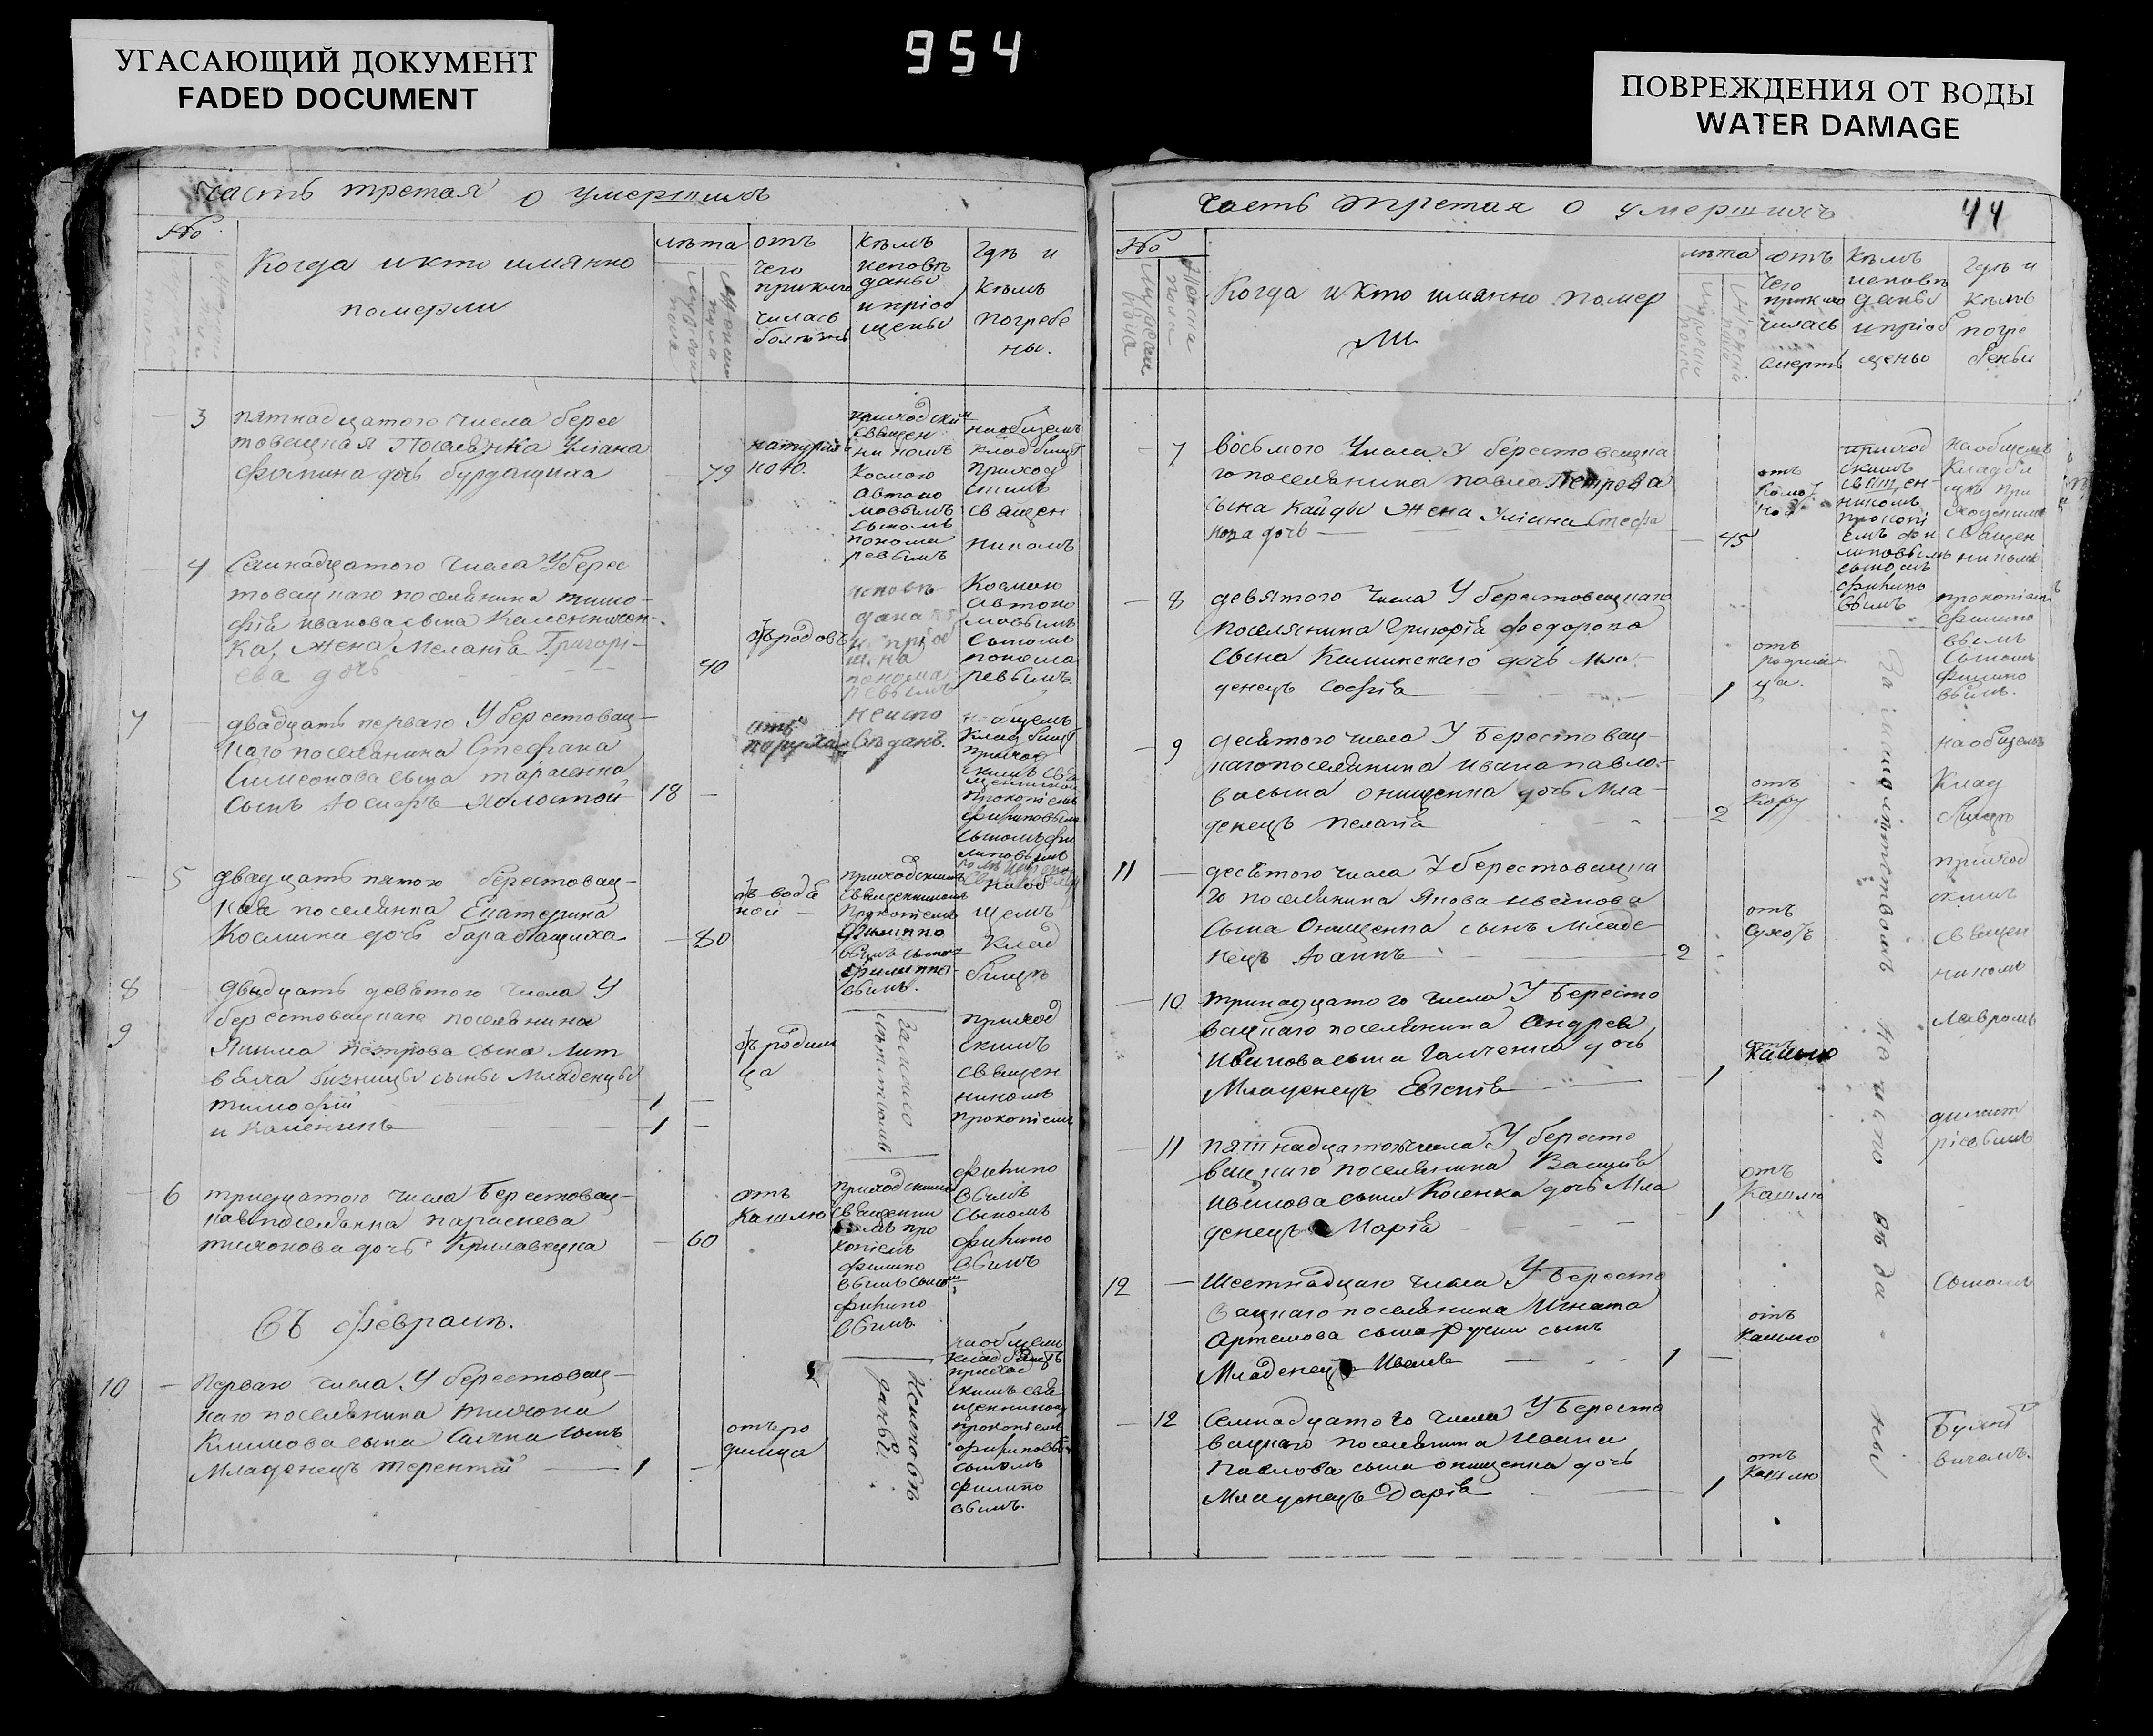 УГАСАЮЩИЙ ДОКУМЕНТ
FADED DOCUMENT
954
ПОВРЕЖДЕНИЯ ОТ ВОДЫ
WATER DAMAGE
Часть третая о умершихъ
№
Когда и кто имянно
померли
лѣта
отъ
чего
приклю
чилась
болѣзнь
Кѣмъ
исповѣ
даны
и пріоб
щены
Гдѣ и
Кѣмъ
погребе
ны.
3
пятнадцатого Числа берес
товецкая Поселянка Уліана
Фомина дочь бурдащиха
79
натураль
ною.
приходским
священ
никомъ
Космою
Автоно
мовымъ
сыномъ
понома
ревымъ
на общемъ
кладбищѣ
приход
скимъ
священ
никомъ
4
Семнадцатого Числа У берес
товацкаго поселянина тимо-
фія иванова сына
ка, жена Меланія Григорі-
ева дочь
40
отъ родовъ
исповѣ
дана
и пріоб
щена
понома
ревымъ
Космою
Автоно
мовымъ
сыномъ
понома
ревымъ.
7
двадцать перваго У берестовац-
каго поселянина Стефана
Симеонова сына тараненка
сынъ Іосифъ Холостой
18
отъ
неиспо
вѣданъ.
на общемъ
Кладбищѣ
приход
скимъ свя
щенником
Прокопіемъ
филиповымъ
сыномъ фи
липовымъ
5
двадцать пятого берестовац-
кая поселянка Екатерина
Космина дочь барабащиха
80
отъ водя
ной
приходскимъ
священникомъ
Прокопіемъ
филиппо
вымъ сыном
филиппо-
вымъ.
на об
щемъ
Клад
бищѣ
8
9
двадцать девятого числа У
берестовацкаго поселянина
Якима петрова сына Лит
вяка близнецы сыны Младенцы
тимофій
1
и
1
отъ родим
ца
за мало
лѣтствомъ
приход
скимъ
священ
никомъ
прокопіемъ
филипо
вымъ
сыномъ
филипо
вымъ
6
тридцатого числа Берестовац-
кая поселянка параскева
тихонова дочь Крилавецка
60
отъ
Кашлю
приходскимъ
священни
комъ про
копіемъ
филипо
вымъ сыном
филипо
вымъ.
Въ февралѣ.
10
Перваго числа У берестовац-
каго поселянина тихона
Климова сына сынъ
Младенецъ терентій
1
отъ ро
димца
неисповѣ
даны.
на общемъ
кладбищѣ
приход
скимъ свя
щенником
прокопіемъ
филиповым
сыномъ
филипо
вымъ.
Часть третая о умершихъ
44
№
Мужеска
пола
Женска
пола
Когда и кто имянно помер
ли
лѣта
отъ
чего
приклю
чилась
смерть
Кѣмъ
исповѣ
даны
и пріоб
щены
Гдѣ и
Кѣмъ
погре
бены
7
восьмого Числа У берестовецка
го поселянина павла Петрова
сына Кайды жена Уліана Стефа
нова дочь
45
отъ
приход
скимъ
священ-
никомъ
прокопі
емъ фи
липовымъ
сыномъ
филипо
вымъ
на общемъ
Кладби
щѣ при
ходскимъ
священ
никомъ
прокопіем
филипо
вымъ
сыномъ
филипо
вымъ.
8
девятого числа У берестовецкаго
поселянина Григорія Федорова
сына Каминскаго дочь мла-
денецъ Софія
1
отъ
родим
ца.
За малолѣтствомъ не исповѣданы
9
десятого числа У Берестовац-
каго поселянина ивана павло-
ва сына онищенка дочь Мла-
денецъ пелагія
2
отъ
Кору
на общемъ
Клад
бищѣ
приход
скимъ
священ
никомъ
Лавромъ
11
десятого числа У берестовацка
го поселянина Якова иванова
сына Онищенка сынъ Младе
нецъ Іоаннъ
2
отъ
10
тринадцатого числа У Бересто
вацкаго поселянина Андрея
Иванова сына Галченка дочь
Младенецъ Евгенія
1
отъ
Кашлю
димит
ріевымъ
11
пятнадцатого числа У бересто
вацкаго поселянина Василія
Иванова сына Косенка дочь Мла
денецъ Марія
1
отъ
Кашлю
12
Шестнадцаго числа У Бересто
вацкаго поселянина Игната
Артемова сына сынъ
Младенецъ Иванъ
1
отъ
Кашлю
сыномъ
12
Семнадцатого числа У Бересто
вацкаго поселянина Ивана
Павлова сына онищенка дочь
Младенецъ Дарія
1
отъ
Кашлю
вичемъ.